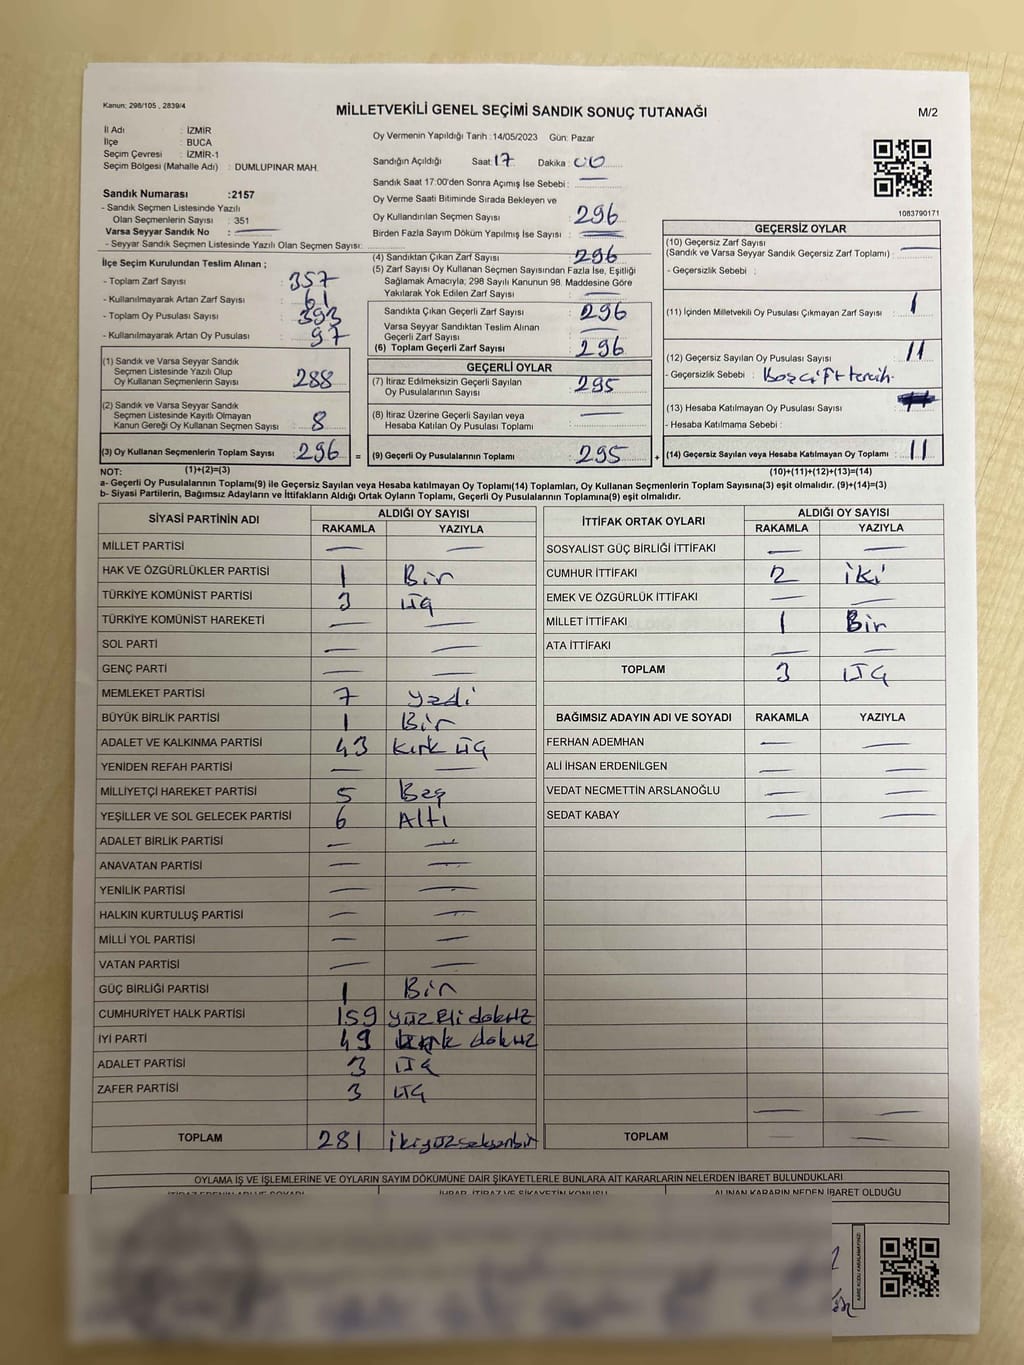 Kanun: 298/105 , 2839/4
MİLLETVEKİLİ GENEL SEÇİMİ SANDIK SONUÇ TUTANAĞI
M/2
İl Adı : İZMİR
İlçe : BUCA
Seçim Çevresi : İZMİR-1
Seçim Bölgesi (Mahalle Adı) : DUMLUPINAR MAH.
Sandık Numarası :2157
- Sandık Seçmen Listesinde Yazılı
Olan Seçmenlerin Sayısı : 351
Varsa Seyyar Sandık No : —
- Seyyar Sandık Seçmen Listesinde Yazılı Olan Seçmen Sayısı:
Oy Vermenin Yapıldığı Tarih :14/05/2023 Gün: Pazar
Sandığın Açıldığı Saat: 17 Dakika : 00
Sandık Saat 17:00'den Sonra Açımış İse Sebebi : —
Oy Verme Saati Bitiminde Sırada Bekleyen ve
Oy Kullandırılan Seçmen Sayısı : 296
Birden Fazla Sayım Döküm Yapılmış İse Sayısı : —
1083790171
İlçe Seçim Kurulundan Teslim Alınan ;
- Toplam Zarf Sayısı : 357
- Kullanılmayarak Artan Zarf Sayısı : 61
- Toplam Oy Pusulası Sayısı : 393
- Kullanılmayarak Artan Oy Pusulası : 97
(1) Sandık ve Varsa Seyyar Sandık
Seçmen Listesinde Yazılı Olup
Oy Kullanan Seçmenlerin Sayısı : 288
(2) Sandık ve Varsa Seyyar Sandık
Seçmen Listesinde Kayıtlı Olmayan
Kanun Gereği Oy Kullanan Seçmen Sayısı : 8
(3) Oy Kullanan Seçmenlerin Toplam Sayısı : 296 =
(4) Sandıktan Çıkan Zarf Sayısı : 296
(5) Zarf Sayısı Oy Kullanan Seçmen Sayısından Fazla İse, Eşitliği
Sağlamak Amacıyla; 298 Sayılı Kanunun 98. Maddesine Göre
Yakılarak Yok Edilen Zarf Sayısı : —
Sandıkta Çıkan Geçerli Zarf Sayısı : 296
Varsa Seyyar Sandıktan Teslim Alınan
Geçerli Zarf Sayısı : —
(6) Toplam Geçerli Zarf Sayısı : 296
GEÇERLİ OYLAR
(7) İtiraz Edilmeksizin Geçerli Sayılan
Oy Pusulalarının Sayısı : 295
(8) İtiraz Üzerine Geçerli Sayılan veya
Hesaba Katılan Oy Pusulası Toplamı : —
(9) Geçerli Oy Pusulalarının Toplamı : 295 +
GEÇERSİZ OYLAR
(10) Geçersiz Zarf Sayısı : —
(Sandık ve Varsa Seyyar Sandık Geçersiz Zarf Toplamı) :
- Geçersizlik Sebebi :
(11) İçinden Milletvekili Oy Pusulası Çıkmayan Zarf Sayısı : 1
(12) Geçersiz Sayılan Oy Pusulası Sayısı : 11
- Geçersizlik Sebebi :
(13) Hesaba Katılmayan Oy Pusulası Sayısı
- Hesaba Katılmama Sebebi :
(14) Geçersiz Sayılan veya Hesaba Katılmayan Oy Toplamı : 11
NOT: (1)+(2)=(3) (10)+(11)+(12)+(13)=(14)
a- Geçerli Oy Pusulalarının Toplamı(9) ile Geçersiz Sayılan veya Hesaba katılmayan Oy Toplamı(14) Toplamları, Oy Kullanan Seçmenlerin Toplam Sayısına(3) eşit olmalıdır. (9)+(14)=(3)
b- Siyasi Partilerin, Bağımsız Adayların ve İttifakların Aldığı Ortak Oyların Toplamı, Geçerli Oy Pusulalarının Toplamına(9) eşit olmalıdır.
SİYASİ PARTİNİN ADI ALDIĞI OY SAYISI
RAKAMLA YAZIYLA
MİLLET PARTİSİ — —
HAK VE ÖZGÜRLÜKLER PARTİSİ 1 Bir
TÜRKİYE KOMÜNİST PARTİSİ 3 üç
TÜRKİYE KOMÜNİST HAREKETİ — —
SOL PARTİ — —
GENÇ PARTİ — —
MEMLEKET PARTİSİ 7 yedi
BÜYÜK BİRLİK PARTİSİ 1 Bir
ADALET VE KALKINMA PARTİSİ 43 kırk üç
YENİDEN REFAH PARTİSİ — —
MİLLİYETÇİ HAREKET PARTİSİ 5 Beş
YEŞİLLER VE SOL GELECEK PARTİSİ 6 Altı
ADALET BİRLİK PARTİSİ — —
ANAVATAN PARTİSİ — —
YENİLİK PARTİSİ — —
HALKIN KURTULUŞ PARTİSİ — —
MİLLİ YOL PARTİSİ — —
VATAN PARTİSİ — —
GÜÇ BİRLİĞİ PARTİSİ 1 Bir
CUMHURİYET HALK PARTİSİ 159 yüz Elli dokuz
İYİ PARTİ 49 kırk dokuz
ADALET PARTİSİ 3 üç
ZAFER PARTİSİ 3 üç
TOPLAM 281 ikiyüzseksenbir
İTTİFAK ORTAK OYLARI ALDIĞI OY SAYISI
RAKAMLA YAZIYLA
SOSYALİST GÜÇ BİRLİĞİ İTTİFAKI — —
CUMHUR İTTİFAKI 2 iki
EMEK VE ÖZGÜRLÜK İTTİFAKI — —
MİLLET İTTİFAKI 1 Bir
ATA İTTİFAKI — —
TOPLAM 3 üç
BAĞIMSIZ ADAYIN ADI VE SOYADI RAKAMLA YAZIYLA
FERHAN ADEMHAN — —
ALİ İHSAN ERDENİLGEN — —
VEDAT NECMETTİN ARSLANOĞLU — —
SEDAT KABAY — —
— —
TOPLAM — —
OYLAMA İŞ VE İŞLEMLERİNE VE OYLARIN SAYIM DÖKÜMÜNE DAİR ŞİKAYETLERLE BUNLARA AİT KARARLARIN NELERDEN İBARET BULUNDUKLARI
İTİRAZ EDENİN ADI VE SOYADI İHBAR, İTİRAZ VE ŞİKAYETİN KONUSU ALINAN KARARIN NEDEN İBARET OLDUĞU